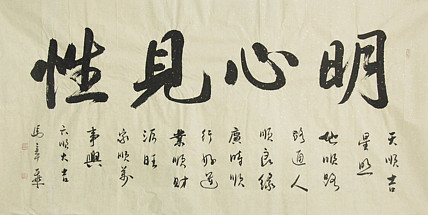 明心見性
天順吉
星照
地順路
路通人
順良緣
廣時順
行好運
業順財
源旺
家順萬
事興
六順大吉